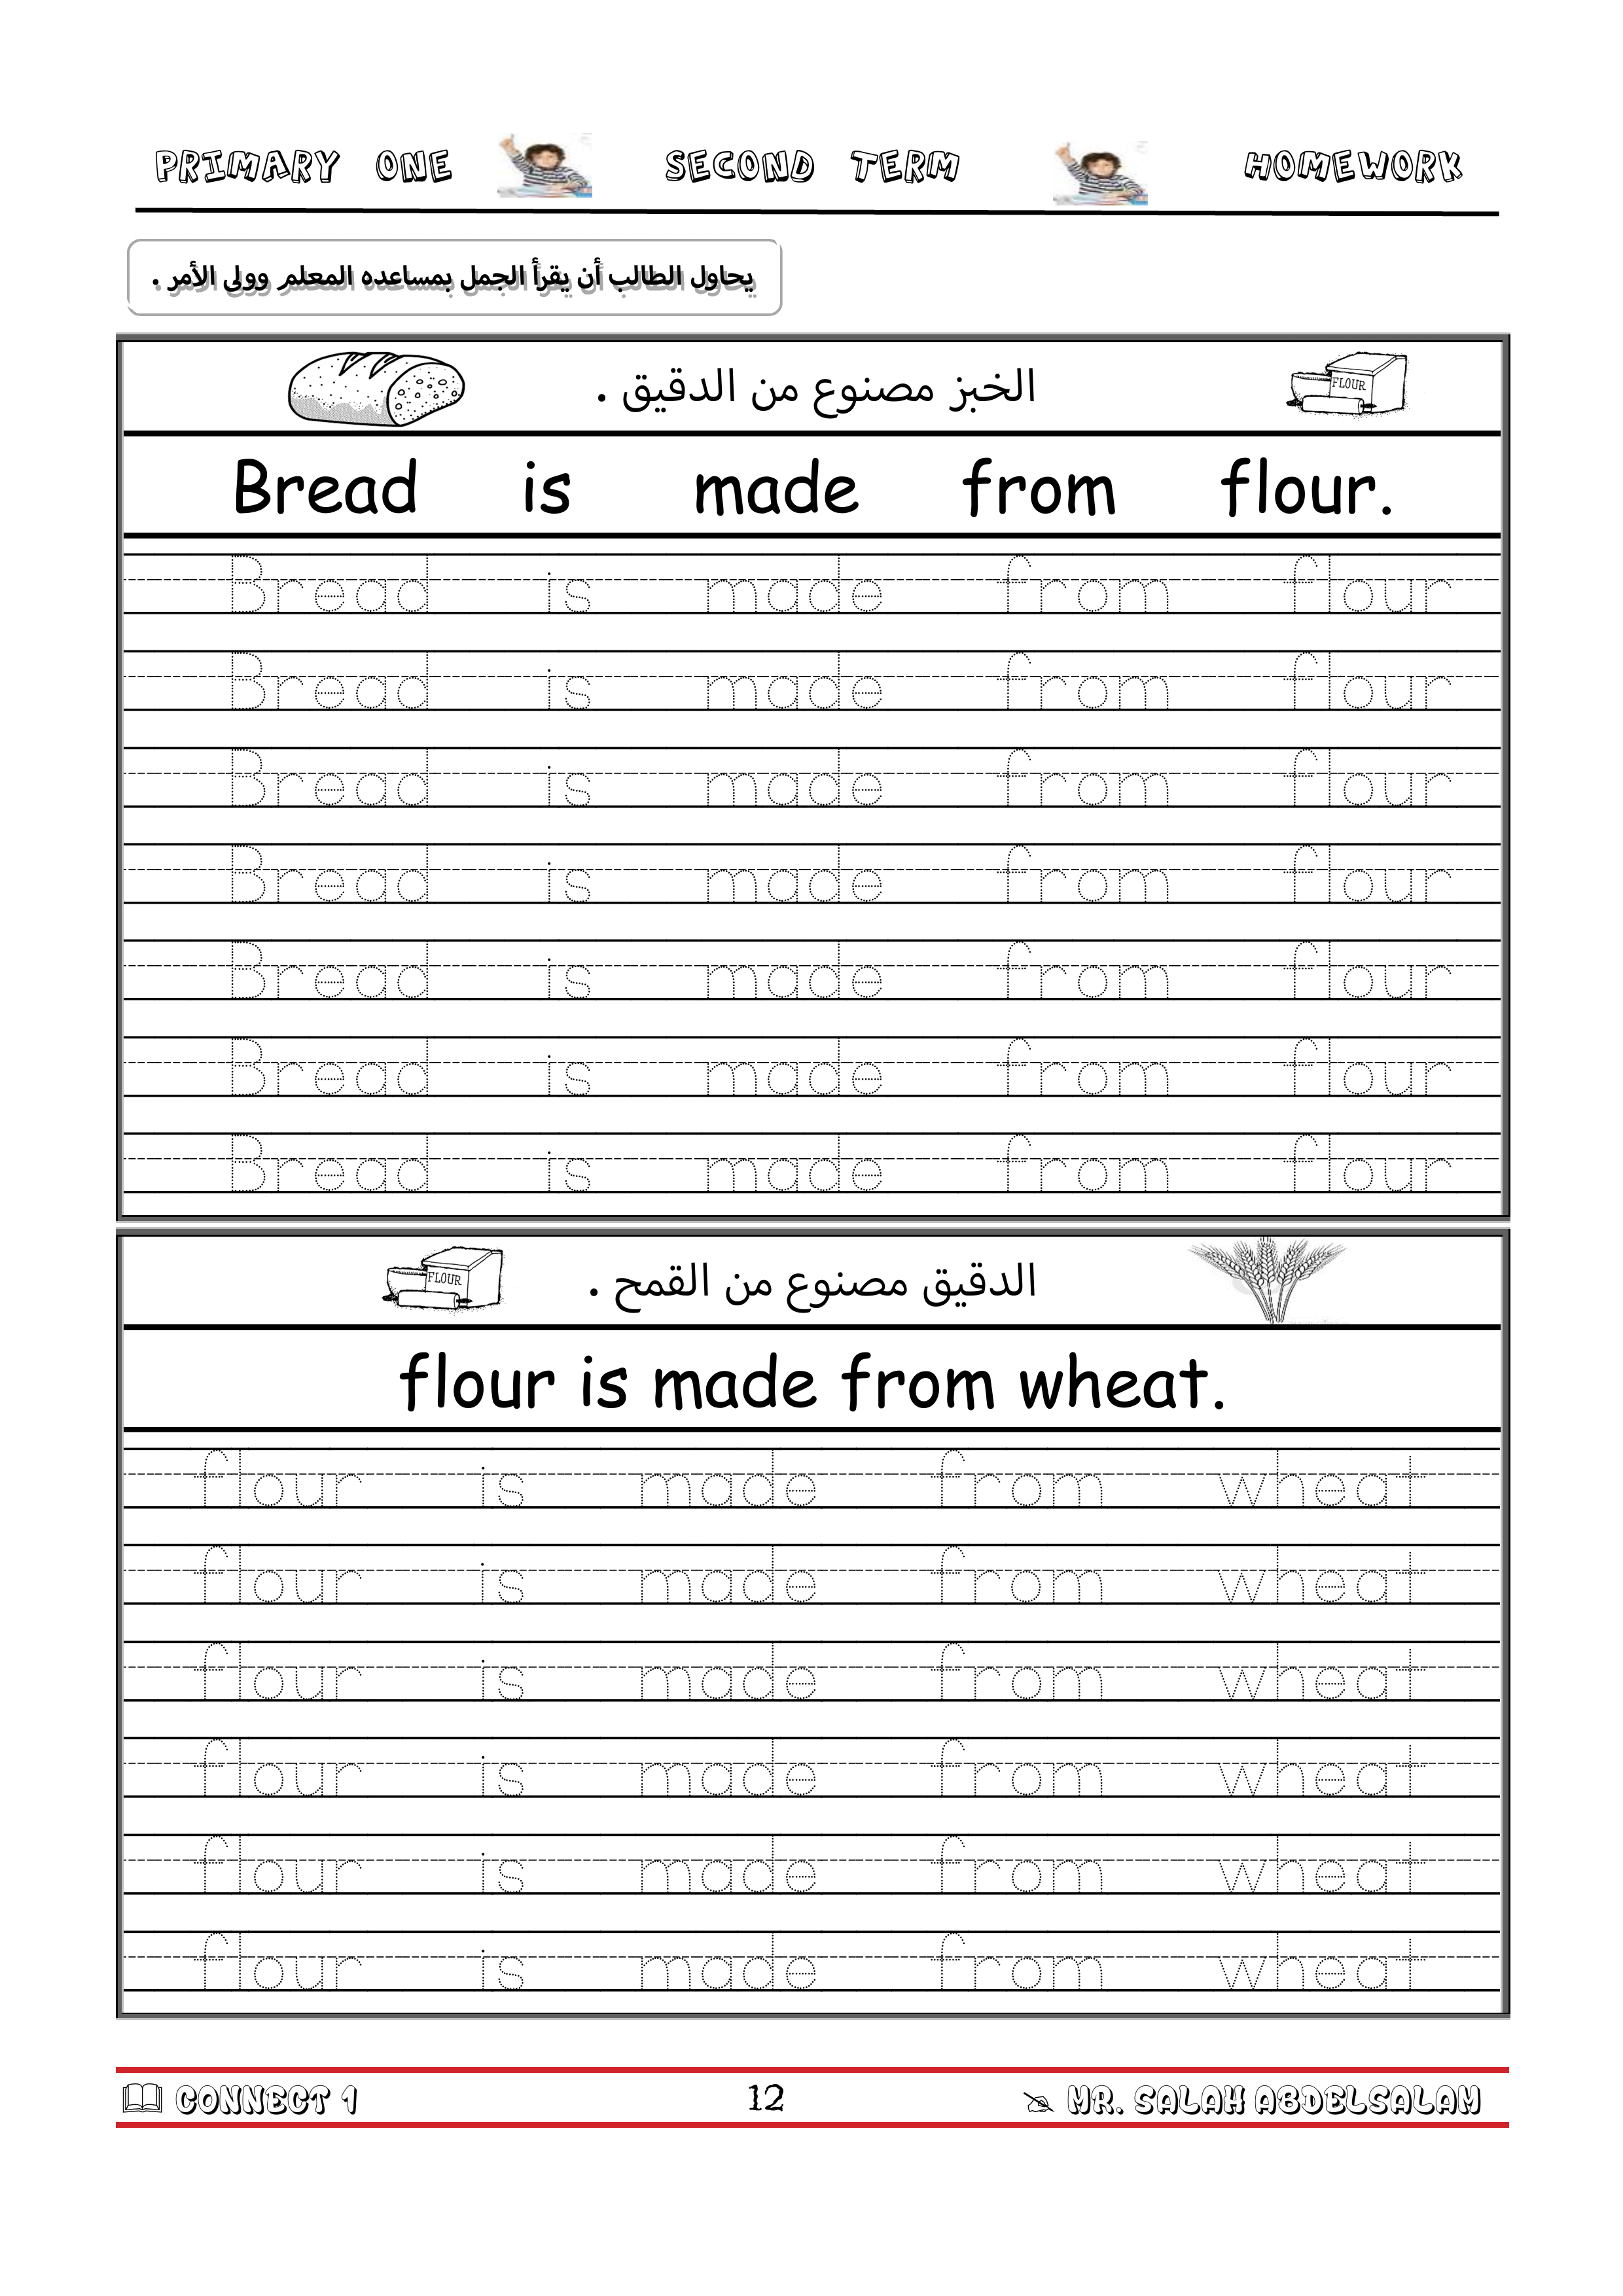 PRIMARY ONE SECOND TERM HOMEWORK
يحاول الطالب أن يقرأ الجمل بمساعده المعلم وولى الأمر .
الخبز مصنوع من الدقيق .
FLOUR
Bread is made from flour.
Bread is made from flour
Bread is made from flour
Bread is made from flour
Bread is made from flour
Bread is made from flour
Bread is made from flour
Bread is made from flour
FLOUR
الدقيق مصنوع من القمح .
flour is made from wheat.
flour is made from wheat
flour is made from wheat
flour is made from wheat
flour is made from wheat
flour is made from wheat
flour is made from wheat
CONNECT 1 12 MR. SALAH ABDELSALAM